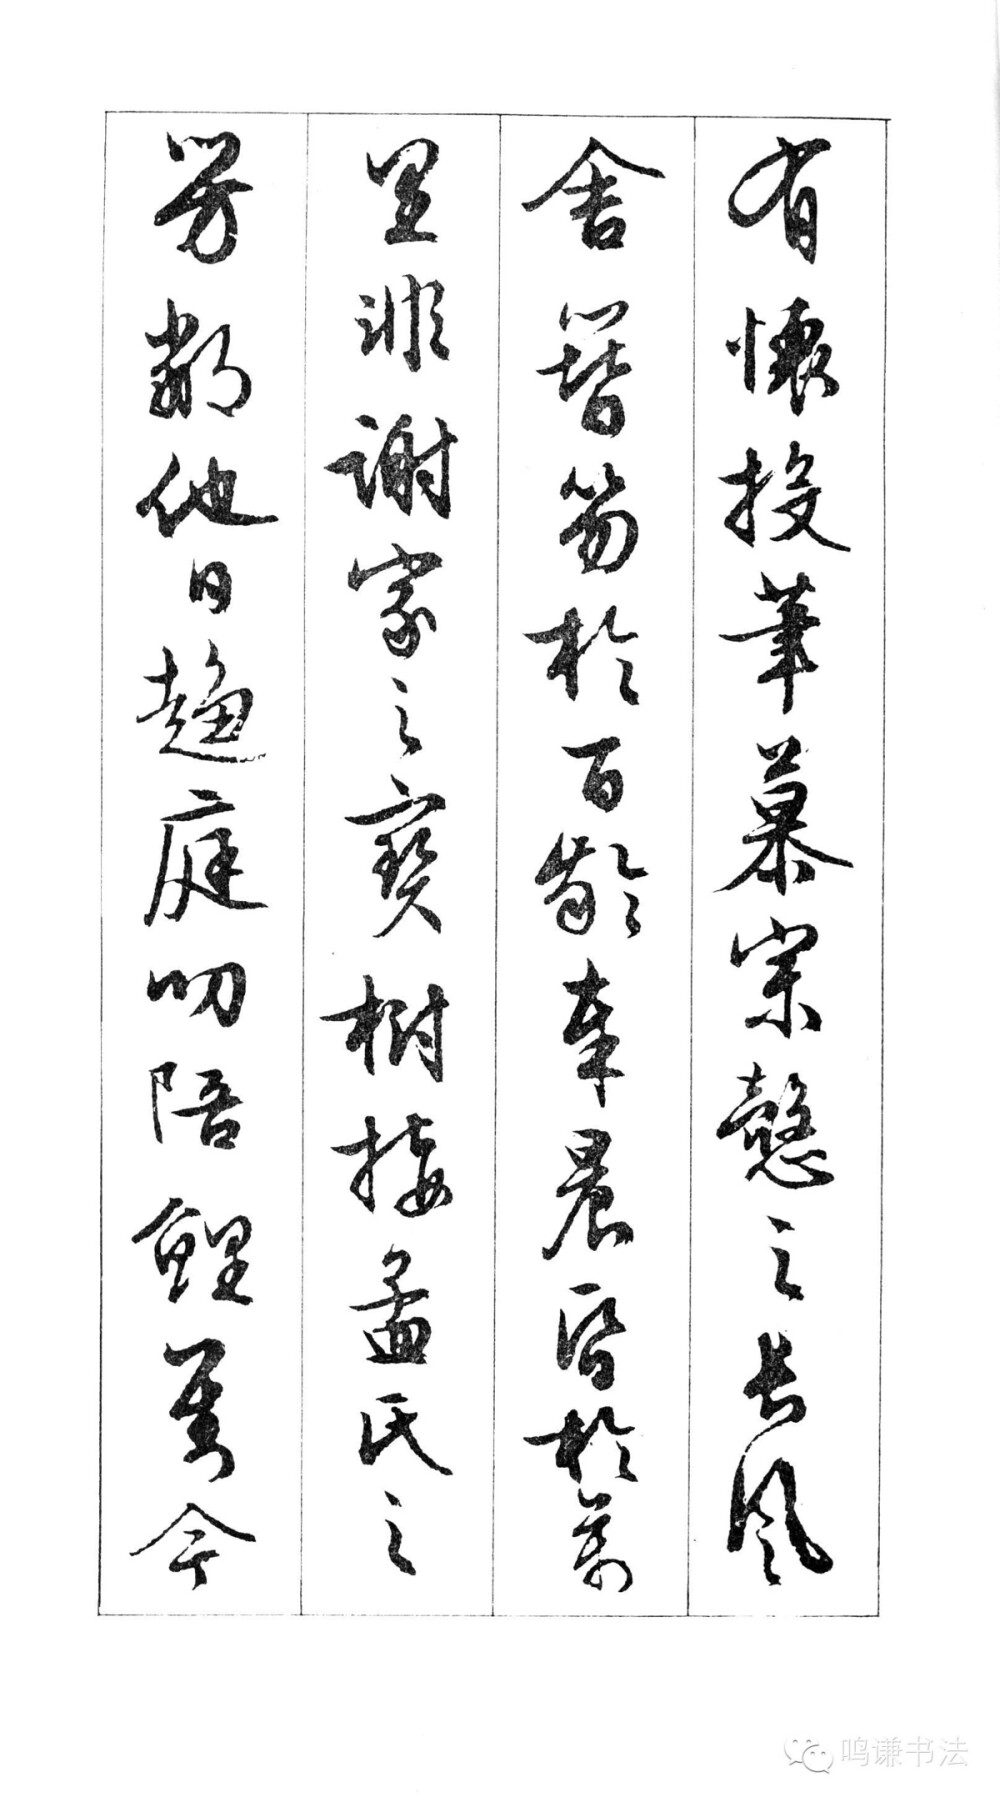 有懷投筆慕宗愨之長風
舍簪笏於百齡奉晨昏於萬
里非謝家之寶樹接孟氏之
芳鄰他日趨庭叨陪鯉對今
鸣谦书法